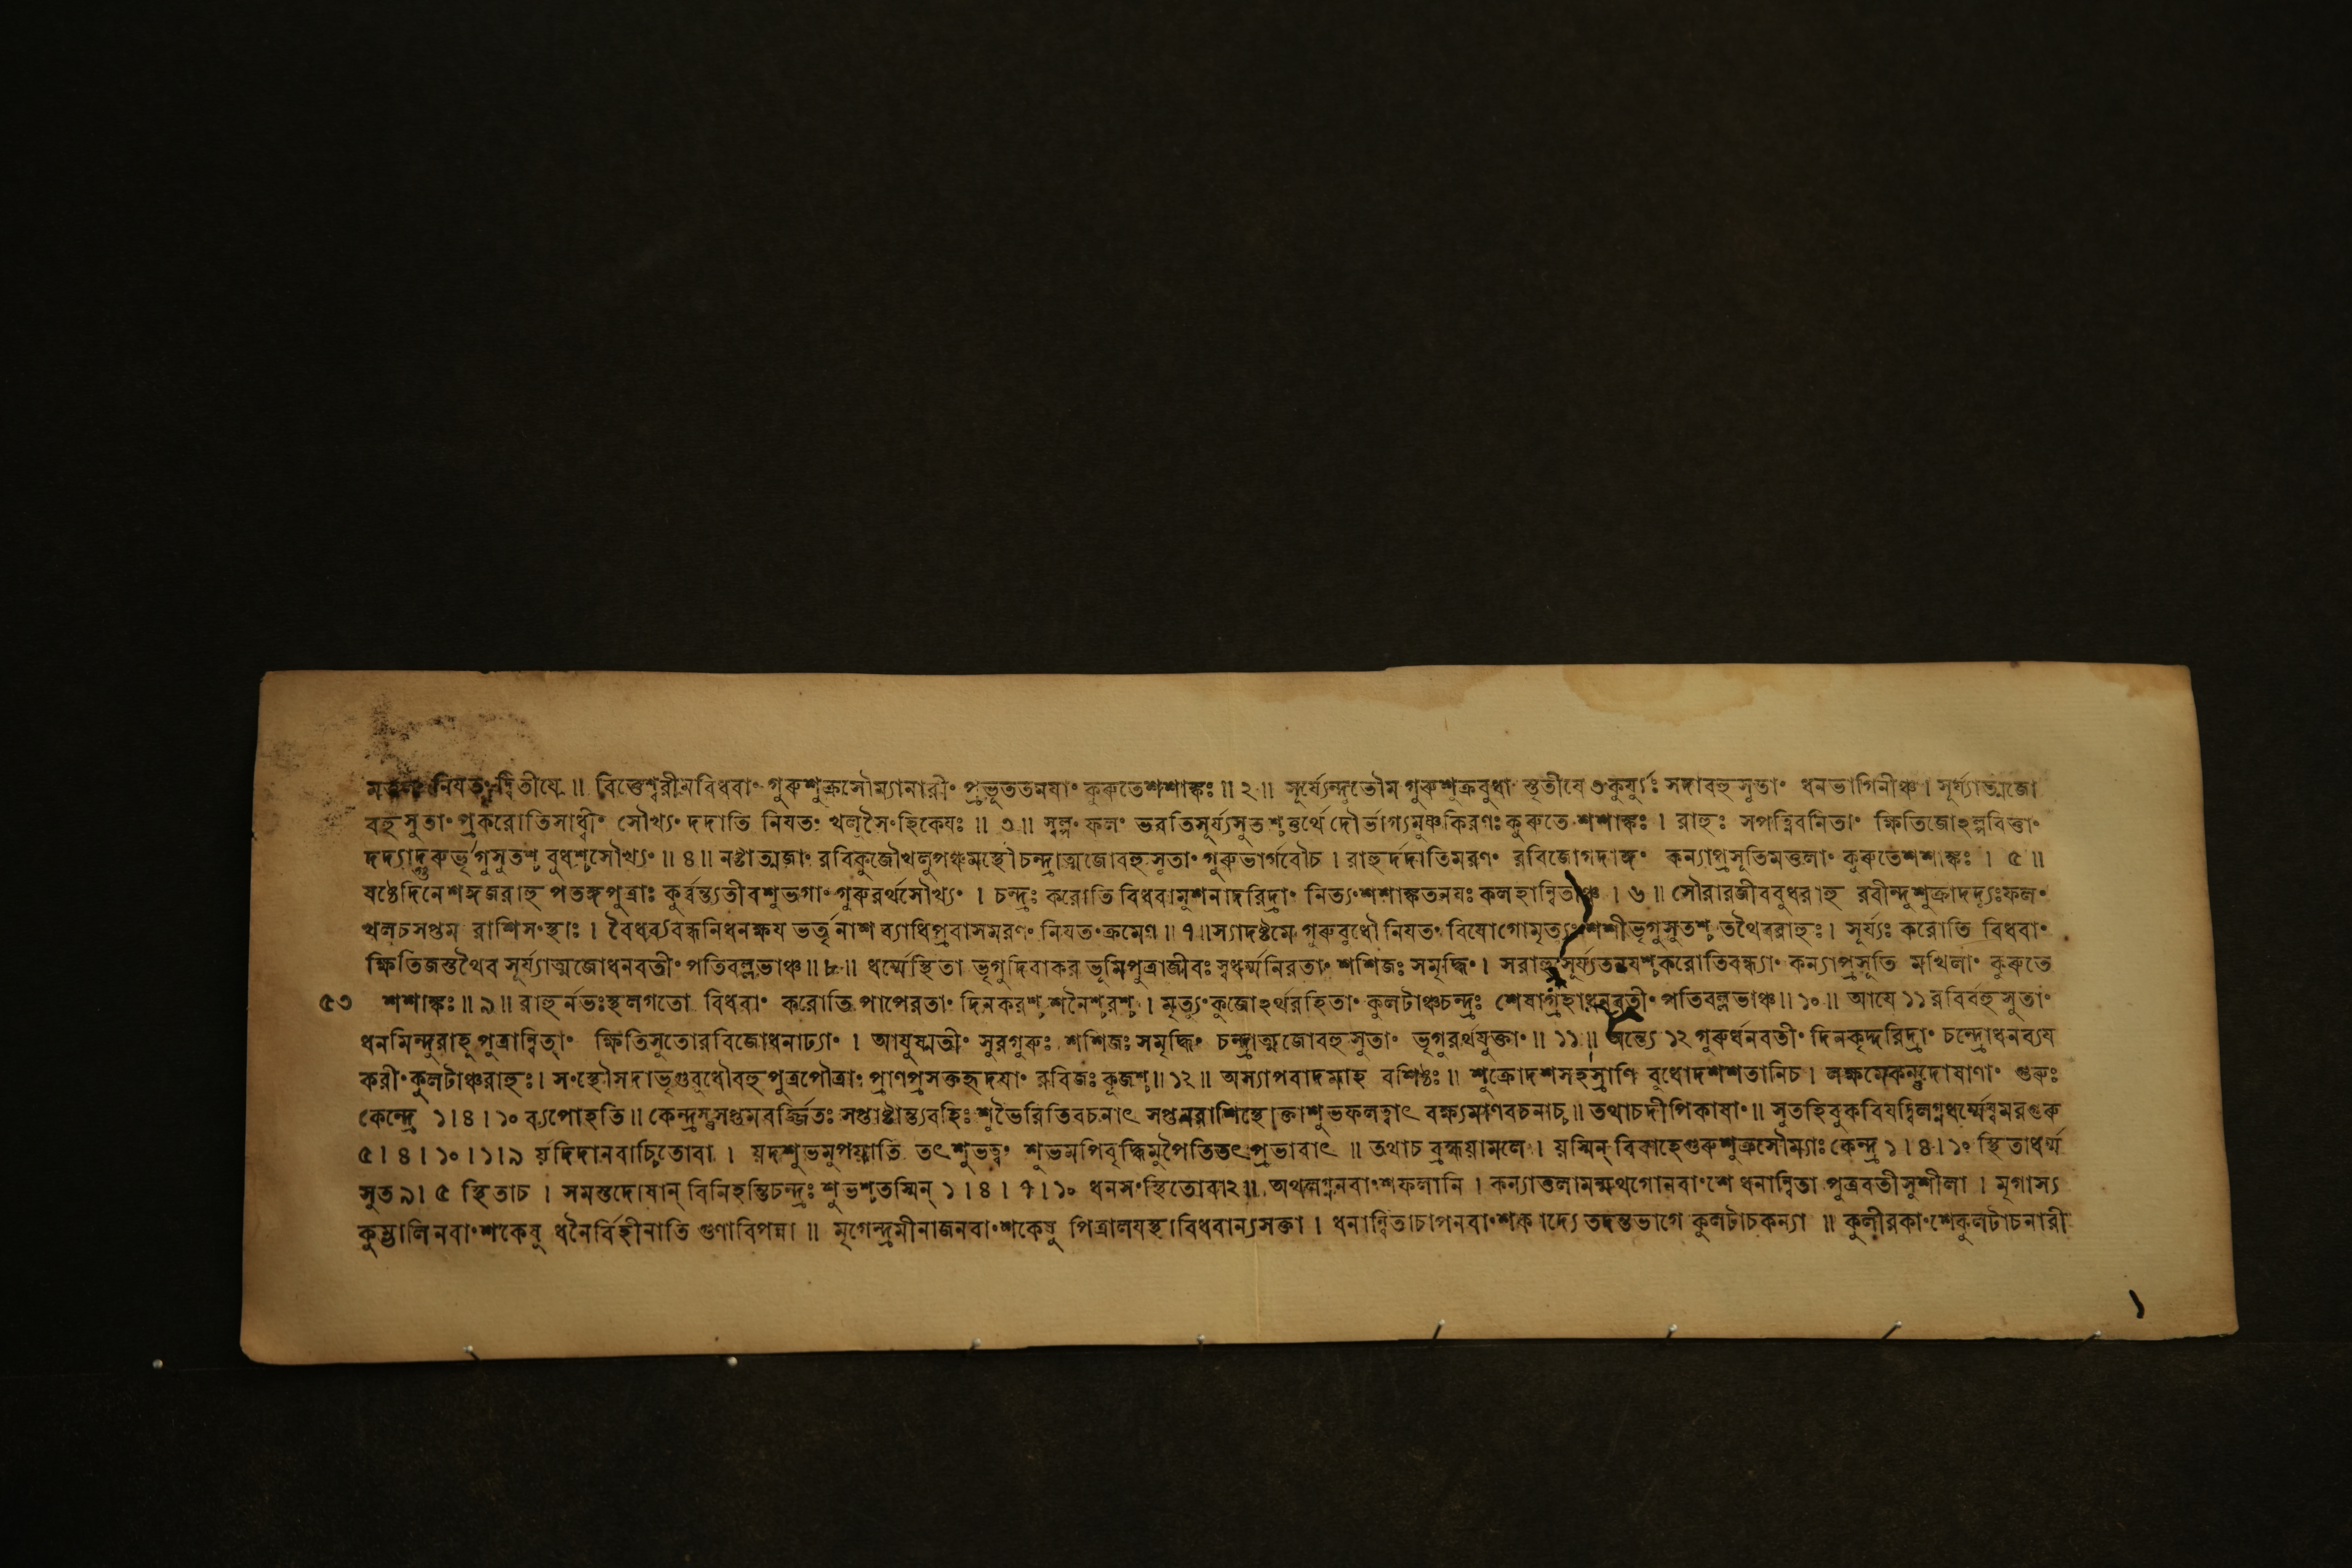 মতুলাং নিযতং দ্বিতীযে ॥ বিত্তেশ্বরীমবিধবাং গুরুশুক্রসৌম্যানারীং প্রভূততনযাং কুরুতেশশাঙ্কঃ ॥ ২ ॥ সূর্য্যেন্দুভৌম গুরুশুক্রবুধা স্তৃতীযে ৩ কুর্য্যুঃ সদাবহুসুতাং ধনভাগিনীঞ্চ । সূর্য্যাত্মজো
বহুসুতাং প্রকরোতিসাধ্বীং সৌখ্যং দদাতি নিযতং খলুসৈংহিকেযঃ ॥ ৩ ॥ স্বল্পং ফলং ভবতিসূর্য্যসুতশ্চতুর্থে দৌর্ভাগ্যমুষ্ণকিরণঃ কুরুতে শশাঙ্কঃ । রাহুঃ সপত্নিবনিতাং ক্ষিতিজোঽল্পবিত্তাং
দদ্যাদ্গুরুর্ভৃগুসুতশ্চ বুধশ্চসৌখ্যং ॥ ৪ ॥ নষ্টাত্মজাং রবিকুজৌখলুপঞ্চমস্থৌচন্দ্রাত্মজোবহুসুতাং গুরুভার্গবৌচ । রাহুর্দদাতিমরণং রবিজোগদাঙ্গং কন্যাপ্রসূতিমতুলাং কুরুতেশশাঙ্কঃ । ৫ ॥
ষষ্ঠেদিনেশঙ্গজরাহু পতঙ্গপুত্রাঃ কুর্ব্বন্ত্যতীবশুভগাং গুরুরর্থসৌখ্যং । চন্দ্রঃ করোতি বিধবামুশনাদরিদ্রাং নিত্যং শশাঙ্কতনযঃ কলহান্বিতাঞ্চ । ৬ ॥ সৌরারজীববুধরাহু রবীন্দুশুক্রাদদ্যুঃফলং
খলচসপ্তম রাশিসংস্থাঃ । বৈধব্যবন্ধনিধনক্ষয ভর্ত্তৃনাশ ব্যাধিপ্রবাসমরণং নিযতংক্রমেণ ॥ ৭ ॥ স্যাদষ্টমে গুরুবুধৌ নিযতং বিযোগোমৃত্যুং শশীভৃগুসুতশ্চ তথৈবরাহুঃ । সূর্য্যঃ করোতি বিধবাং
ক্ষিতিজস্তথৈব সূর্য্যাত্মজোধনবতীং পতিবল্লভাঞ্চ ॥ ৮ ॥ ধর্ম্মেস্থিতা ভৃগুদিবাকর ভূমিপুত্রাজীবঃ স্বধর্ম্মনিরতাং শশিজঃ সমৃদ্ধিং । সরাহুসূর্য্যতনযশ্চকরোতিবন্ধ্যাং কন্যাপ্রসূতি মখিলাং কুরুতে
৫৩ শশাঙ্কঃ ॥ ৯ ॥ রাহুর্নভঃস্থলগতো বিধবাং করোতি পাপেরতাং দিনকরশ্চ শনৈশ্চরশ্চ । মৃত্যুং কুজোঽর্থরহিতাং কুলটাঞ্চচন্দ্রঃ শেষাগ্রহাধনবতীং পতিবল্লভাঞ্চ ॥ ১০ ॥ আযে ১১ রবির্বহুসুতাং
ধনমিন্দুরাহু পুত্রান্বিতাং ক্ষিতিসুতোরবিজোধনাঢ্যাং । আযুষ্মতীং সুরগুরুঃ শশিজঃ সমৃদ্ধিং চন্দ্রাত্মজোবহুসুতাং ভৃগুরর্থযুক্তাং ॥ ১১ ॥ অন্ত্যে ১২ গুরুর্ধনবতীং দিনকৃদ্দরিদ্রাং চন্দ্রোধনব্যয
করীং কুলটাঞ্চরাহুঃ । সংস্থৌসদাভৃগুবুধৌবহুপুত্রপৌত্রাং প্রাণপ্রসক্তহৃদযাং রবিজঃ কুজশ্চ ॥ ১২ ॥ অস্যাপবাদমাহ বশিষ্ঠঃ ॥ শুক্রোদশসহস্রাণি বুধোদশশতানিচ । লক্ষমেকন্তুদোষাণাং গুরুঃ
কেন্দ্রে ১ । ৪ । ১০ ব্যপোহতি ॥ কেন্দ্রন্তুসপ্তমবর্জ্জিতঃ সপ্তাষ্টান্ত্যবহিঃ শুভৈরিতিবচনাৎ সপ্তমরাশিস্থোক্তাশুভফলত্বাৎ বক্ষ্যমাণবচনাচ্চ ॥ তথাচদীপিকাযাং ॥ সুতহিবুকবিযদ্বিলগ্নধর্ম্মেষ্বমরগুরু
৫ । ৪ । ১০ । ১ । ৯ র্যদিদানবার্চিতোবা । যদশুভমুপযাতি তৎশুভত্বং শুভমপিবৃদ্ধিমুপৈতিতৎপ্রভাবাৎ ॥ তথাচ ব্রহ্মযামলে । যস্মিন্ বিবাহেগুরুশুক্রসৌম্যাঃ কেন্দ্র ১ । ৪ । ১০ স্থিতাধর্ম্ম
সুত ৯ । ৫ স্থিতাচ । সমস্তদোষান্ বিনিহন্তিচন্দ্রঃ শুভশ্চতস্মিন্ ১ । ৪ । ৭ । ১০ ধনসংস্থিতোবা ২ ॥ অথলগ্ননবাংশফলানি । কন্যাতুলামন্মথগোনবাংশে ধনান্বিতা পুত্রবতীসুশীলা । মৃগাস্য
কুম্ভালিনবাংশকেষু ধনৈর্বিহীনাতি গুণাবিপন্না ॥ মৃগেন্দ্রমীনাজনবাংশকেষু পিত্রালযস্থাবিধবান্যসক্তা । ধনান্বিতাচাপনবাংশকাদ্যে তদন্তভাগে কুলটাচকন্যা ॥ কুলীরকাংশেকুলটাচনারী
১